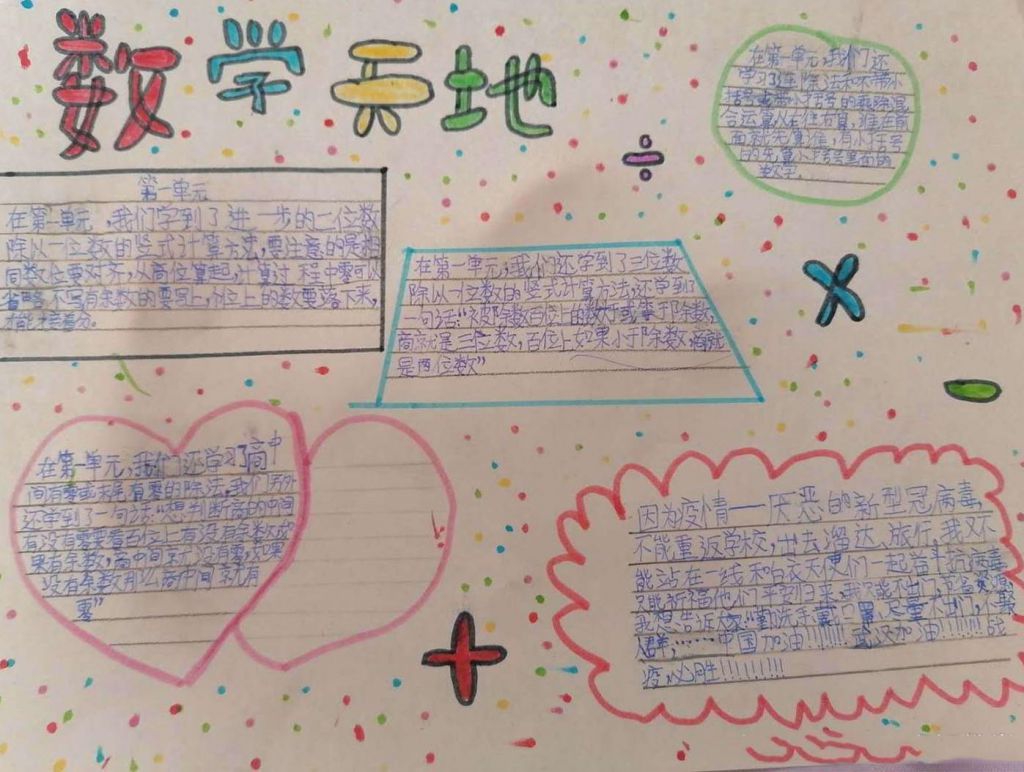 数学天地
第一单元
在第一单元,我们学到了进一步的二位数
除以一位数的竖式计算方法,要注意的是相
同数位要对齐,从高位算起,计算过程中零可以
省略不写有余数的要写上,个位上的数要落下来,
才能接着分。
在第一单元,我们还
学习到连除法和不带
括号或带小括号的乘除混
合运算从左往右算,谁在前
面就先算谁,有小括号
的先算小括号里面的
数字。
在第一单元,我们还学到了三位数
除以一位数的竖式计算方法,还学到了
一句话:“被除数百位上的数大于或等于除数,
商就是三位数,百位上如果小于除数,商就
是两位数”
在第一单元,我们还学习了商中
间有零或末尾有零的除法,我们另外
还学到了一句话:“想判断商的中间
有没有零要看百位上有没有余数如
果有余数,商中间就没有零,如果
没有余数那么商中间就有
零”
因为疫情——厌恶的新型冠病毒
不能重返学校,出去溜达、旅行,我又不
能站在一线和白衣天使们一起并肩抗病毒
只能祈福他们平安归来,我只能不出门,
我想告诉大家:“勤洗手戴口罩,尽量不出门,不聚
群,……中国加油!!!!!!!武汉加油!!!!!!!战
疫必胜!!!!!!!!!!